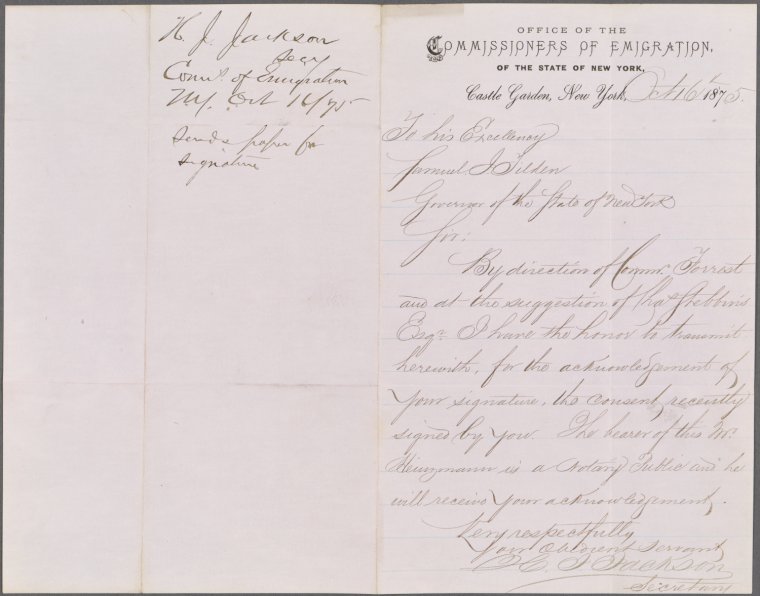 H. J. Jackson
Secy
Comrs of Emigration
N.Y. Oct 16/75
sends paper for
signature
OFFICE OF THE
COMMISSIONERS OF EMIGRATION,
OF THE STATE OF NEW YORK,
Castle Garden, New York, Oct 16th 1875.
To his Excellency
Samuel J Tilden
Governor of the State of New York
Sir:
By direction of Commr. Forrest
and at the suggestion of Chas Stebbins
Esqr. I have the honor to transmit
herewith, for the acknowledgement of
your signature, the consent recently
signed by you. The bearer of this Mr.
Heinzmann is a Notary Public and he
will receive your acknowledgement.
Very respectfully
Your Obedient Servant
H. J. Jackson
Secretary